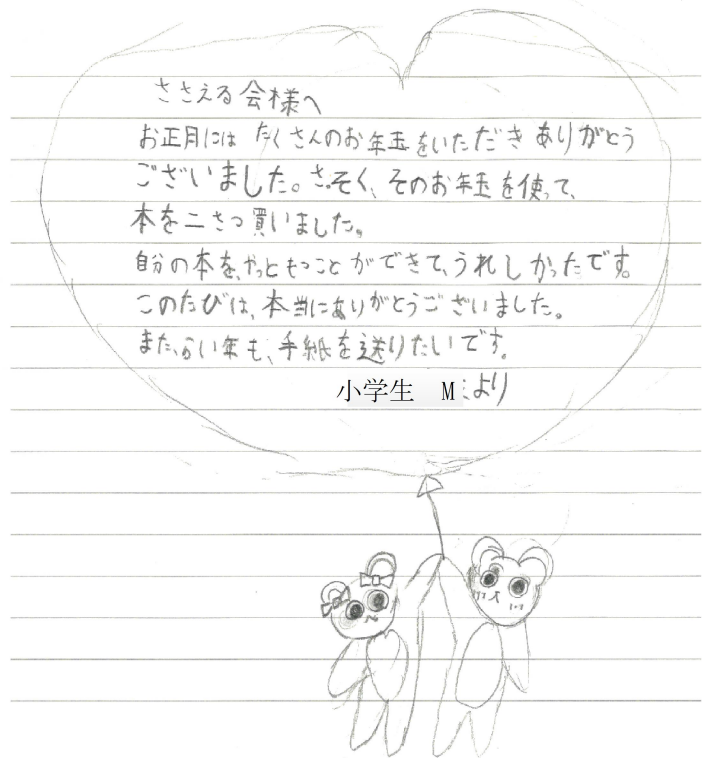 ささえる会様へ
お正月には たくさんのお年玉をいただき ありがとう
ございました。さっそく、そのお年玉を使って、
本を二さつ買いました。
自分の本を、やっともつことができて、うれしかったです。
このたびは、本当にありがとうございました。
また、らい年も、手紙を送りたいです。
小学生 M より